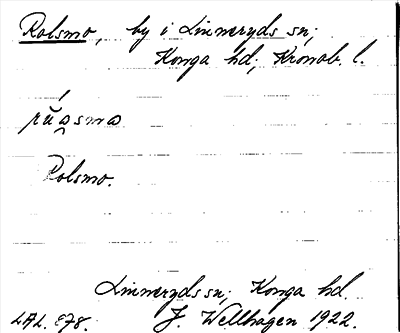 Rolsmo, by i Linneryds sn;
Konga hd; Kronob. l.
Rolsmo.
Linneryds sn; Konga hd.
LAL. E78. J. Wellhagen 1922.